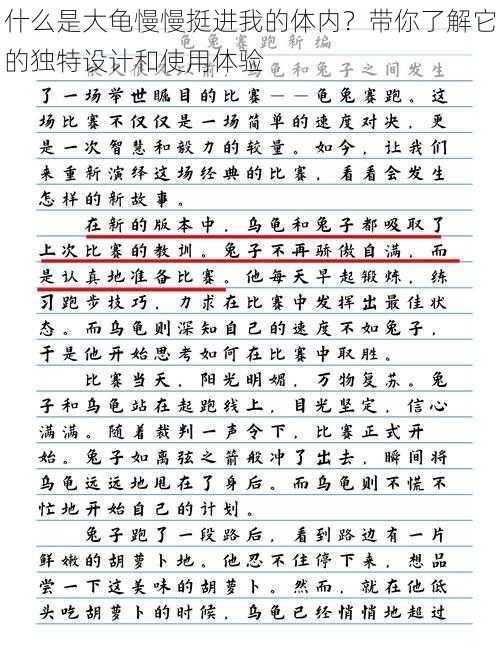 什么是大龟慢慢挺进我的体内？带你了解它
的独特设计和使用体验
龟兔赛跑新编
很久很久以前，乌龟和兔子之间发生
了一场举世瞩目的比赛——龟兔赛跑。这
场比赛不仅仅是一场简单的速度对决，更
是一次智慧和毅力的较量。如今，让我们
来重新演绎这场经典的比赛，看看会发生
怎样的新故事。
在新的版本中，乌龟和兔子都吸取了
上次比赛的教训。兔子不再骄傲自满，而
是认真地准备比赛。他每天早起锻炼，练
习跑步技巧，力求在比赛中发挥出最佳状
态。而乌龟则深知自己的速度不如兔子，
于是他开始思考如何在比赛中取胜。
比赛当天，阳光明媚，万物复苏。兔
子和乌龟站在起跑线上，目光坚定，信心
满满。随着裁判一声令下，比赛正式开
始。兔子如离弦之箭般冲了出去，瞬间将
乌龟远远地甩在了身后。而乌龟则不慌不
忙地开始自己的计划。
兔子跑了一段路后，看到路边有一片
鲜嫩的胡萝卜地。他忍不住停下来，想品
尝一下这美味的胡萝卜。然而，就在他低
头吃胡萝卜的时候，乌龟已经悄悄地超过